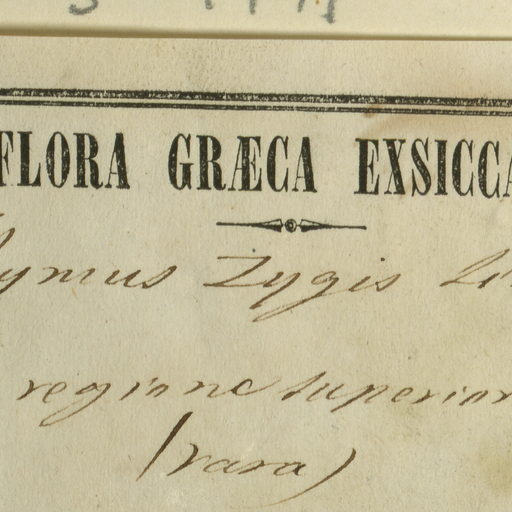 FLORA GRÆCA EXSICCA
ymus Zygis Li
regione superior
(rara)